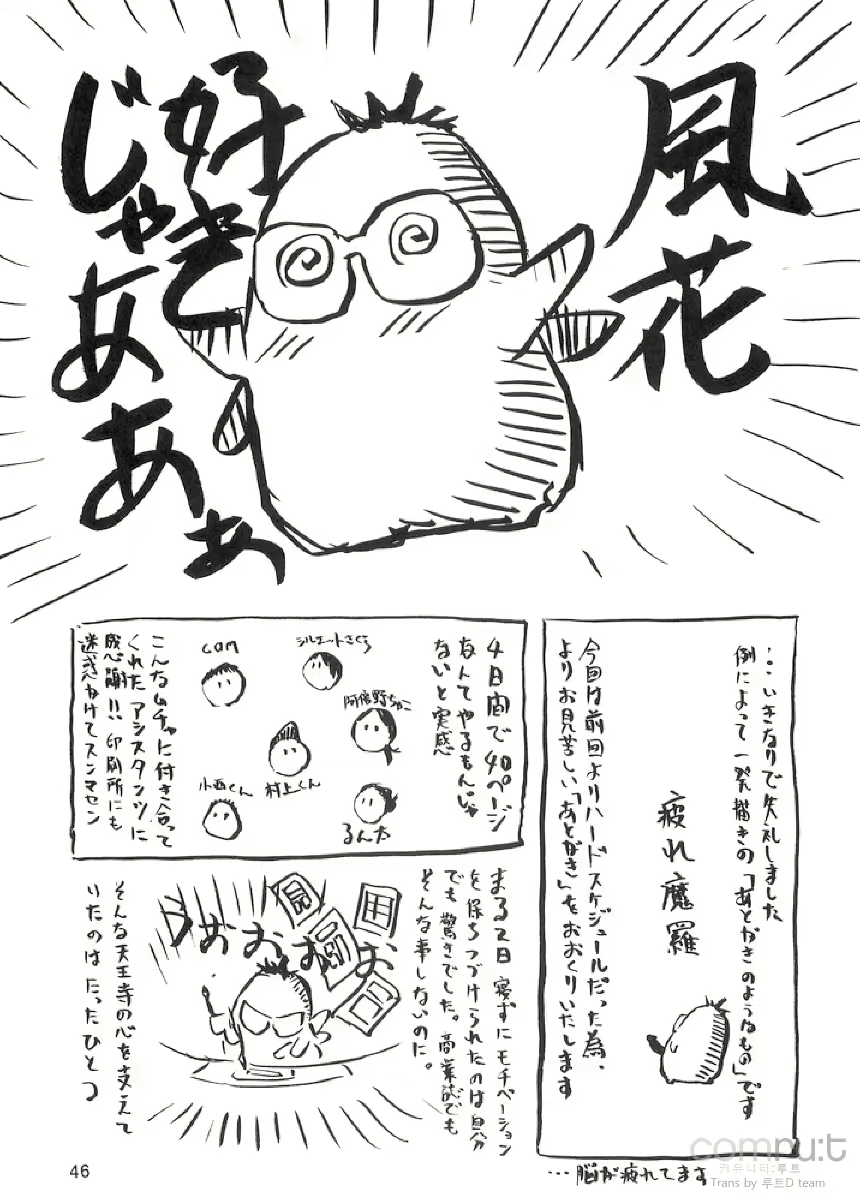 風花
好き
じゃあああぁ
・・・いきなりで失礼しました
例によって一発描きの「あとがきのようなもの」です
疲れ魔羅
今回は前回よりハードスケジュールだった為、
よりお見苦しい「あとがき」をおおくりいたします
・・・脳が疲れてます
4日間で40ページ
なんてやるもんじゃ
ないと実感
シルエットさくら
com
阿倍野ちゃこ
村上くん
小西くん
るんた
こんなムチャに付き合って
くれたアシスタンツに
感謝!!印刷所にも
迷惑かけてスンマセン
まる2日寝ずにモチベーション
を保ちつづけられたのは自分
でも驚きでした。商業誌でも
そんな事しないのに。
うおおおおお
そんな天王寺の心を支えて
いたのはたったひとつ
46
compu:t
커뮤니티:루트
Trans by 루트D team